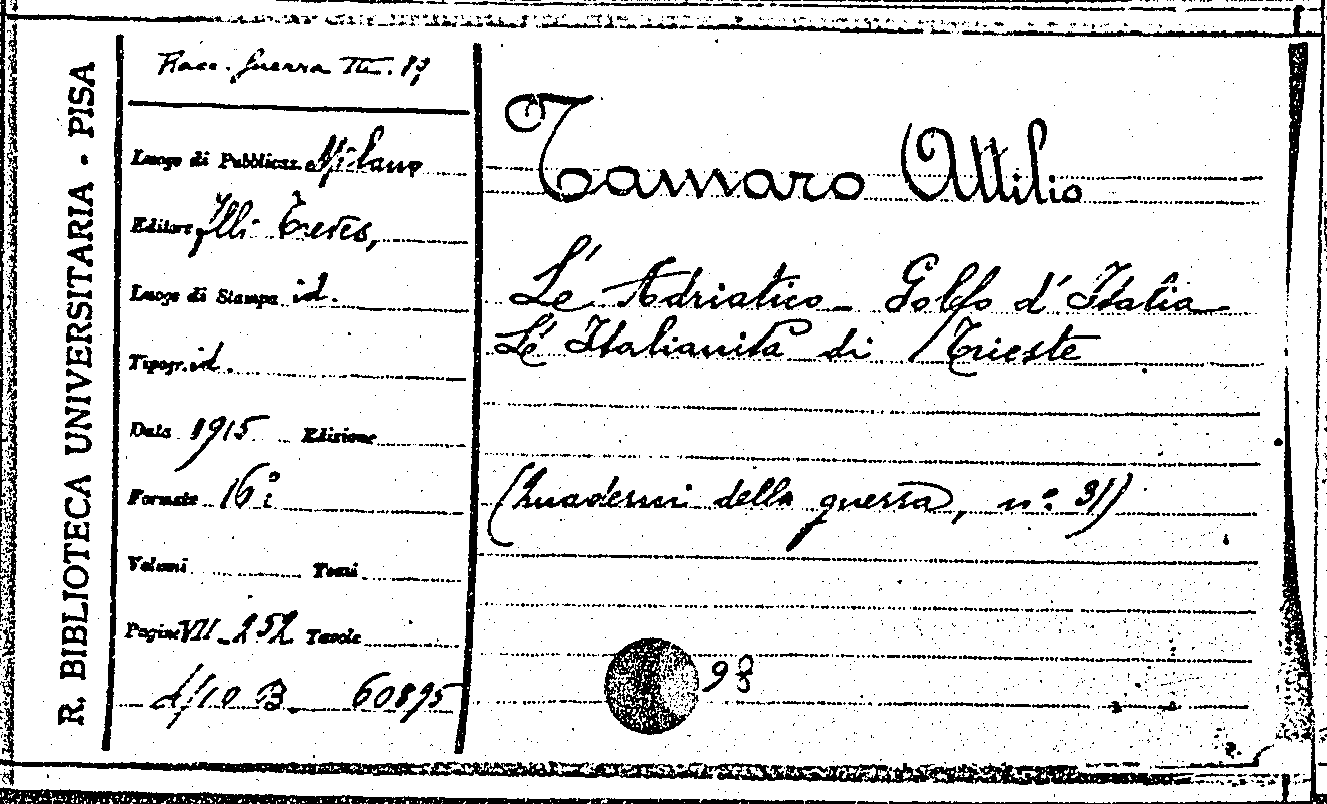 R. BIBLIOTECA UNIVERSITARIA - PISA
Racc. Guerra III. 87
Luogo di Pubblicaz. Milano
Editore Flli Treves,
Luogo di Stampa id.
Tipogr. id.
Data 1915 Edizione
Formato 16º
Volumi Tomi
Pagine VII-252 Tavole
d/10 B. 60895
Tamaro Attilio
L'Adriatico - Golfo d'Italia
L'Italianità di Trieste
(Quaderni della guerra, nº. 31)
98